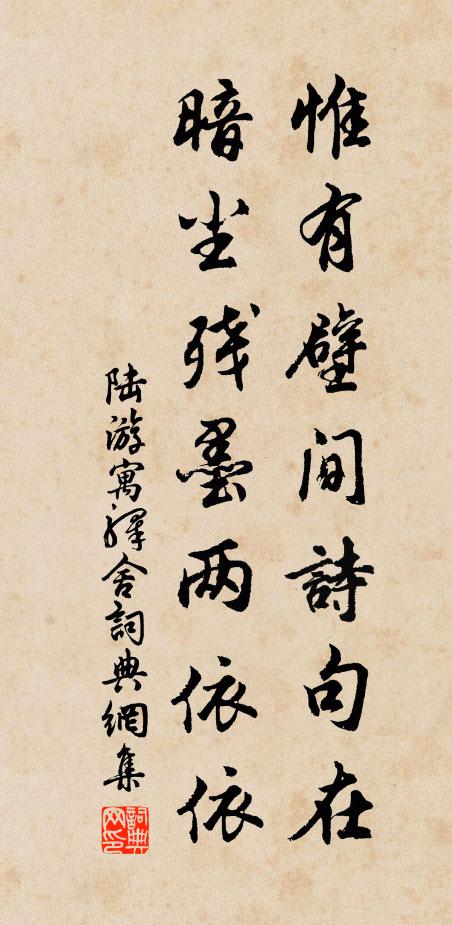 惟有壁间詩句在
暗尘残墨两依依
陆游寓驿舍詞典網集
詞典网印